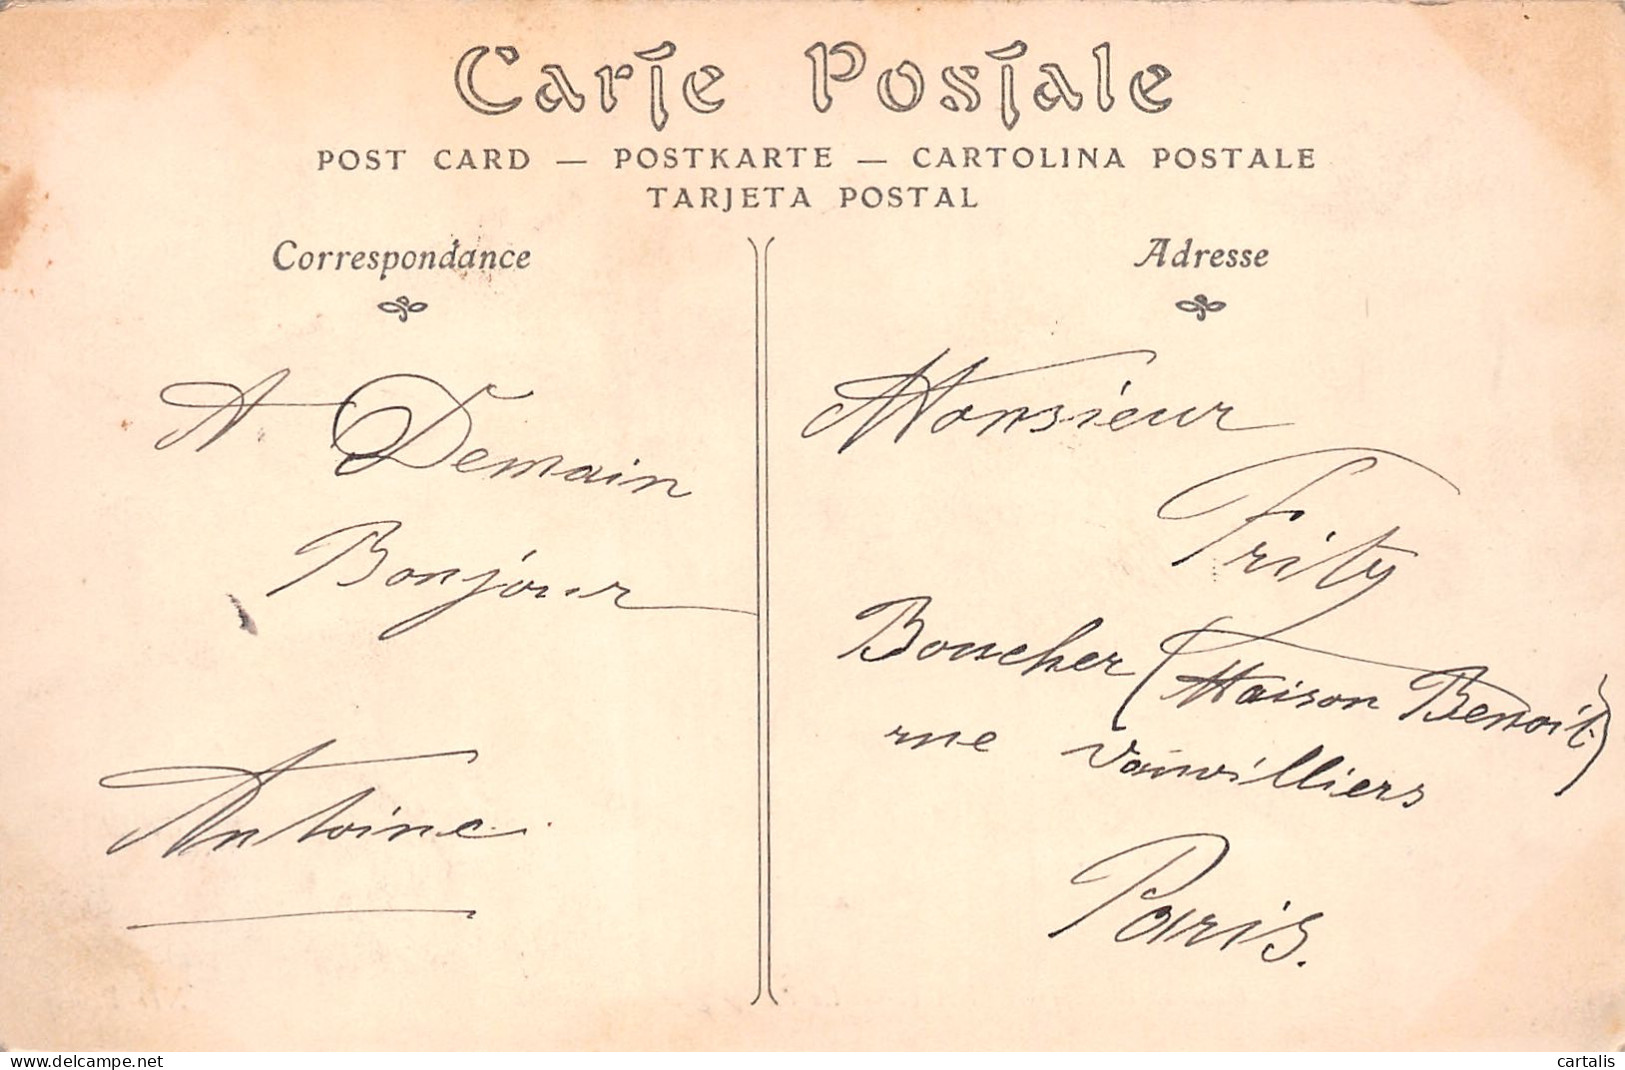 Carte Postale
POST CARD — POSTKARTE — CARTOLINA POSTALE
TARJETA POSTAL
Correspondance
A Demain
Bonjour
Antoine
Adresse
Monsieur
Frity
Boucher (Maison Benoit)
rue
Paris.
www.delcampe.net
cartalis